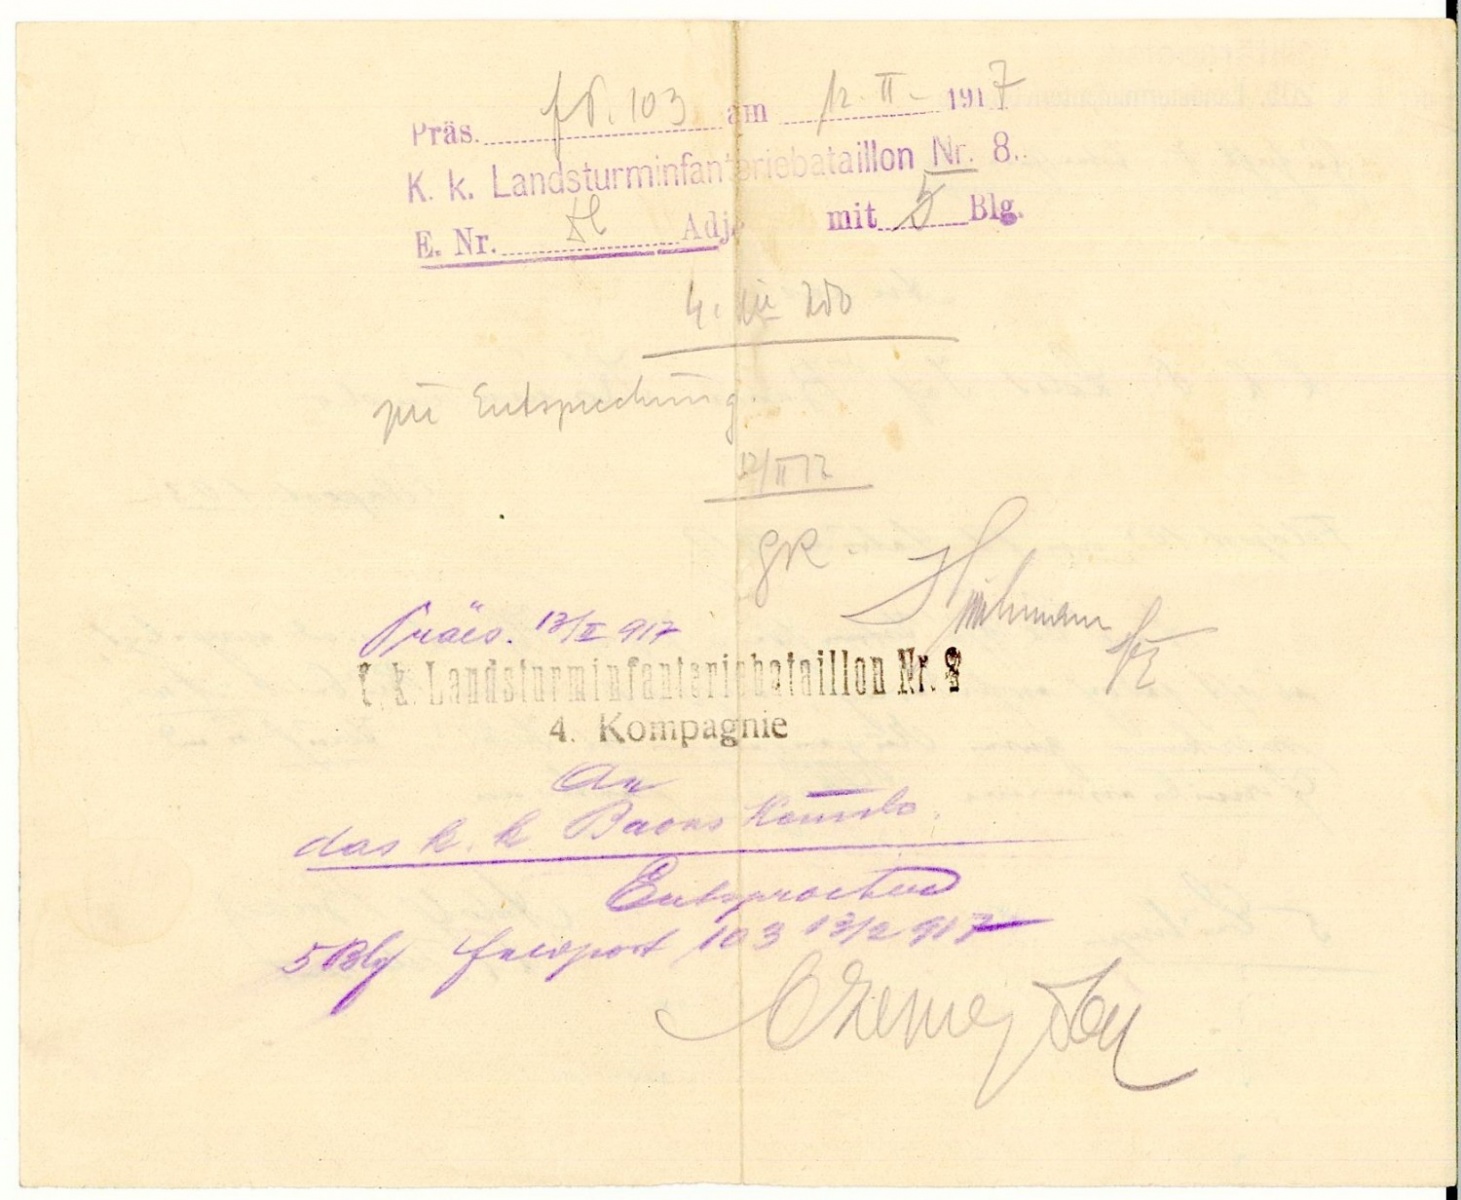 Präs. fp. 103 am 12. II. 1917
K. k. Landsturminfanteriebataillon Nr. 8.
E. Nr. Adj. mit 5 Blg.
zu Entsprechung.
12/II 17
Präs. 13/II 917
k. k. Landsturminfanteriebataillon Nr. 8
4. Kompagnie
An
das k. k. Baons Komdo.
Entsprochen
5 Blg Feldpost 103 13/2 917